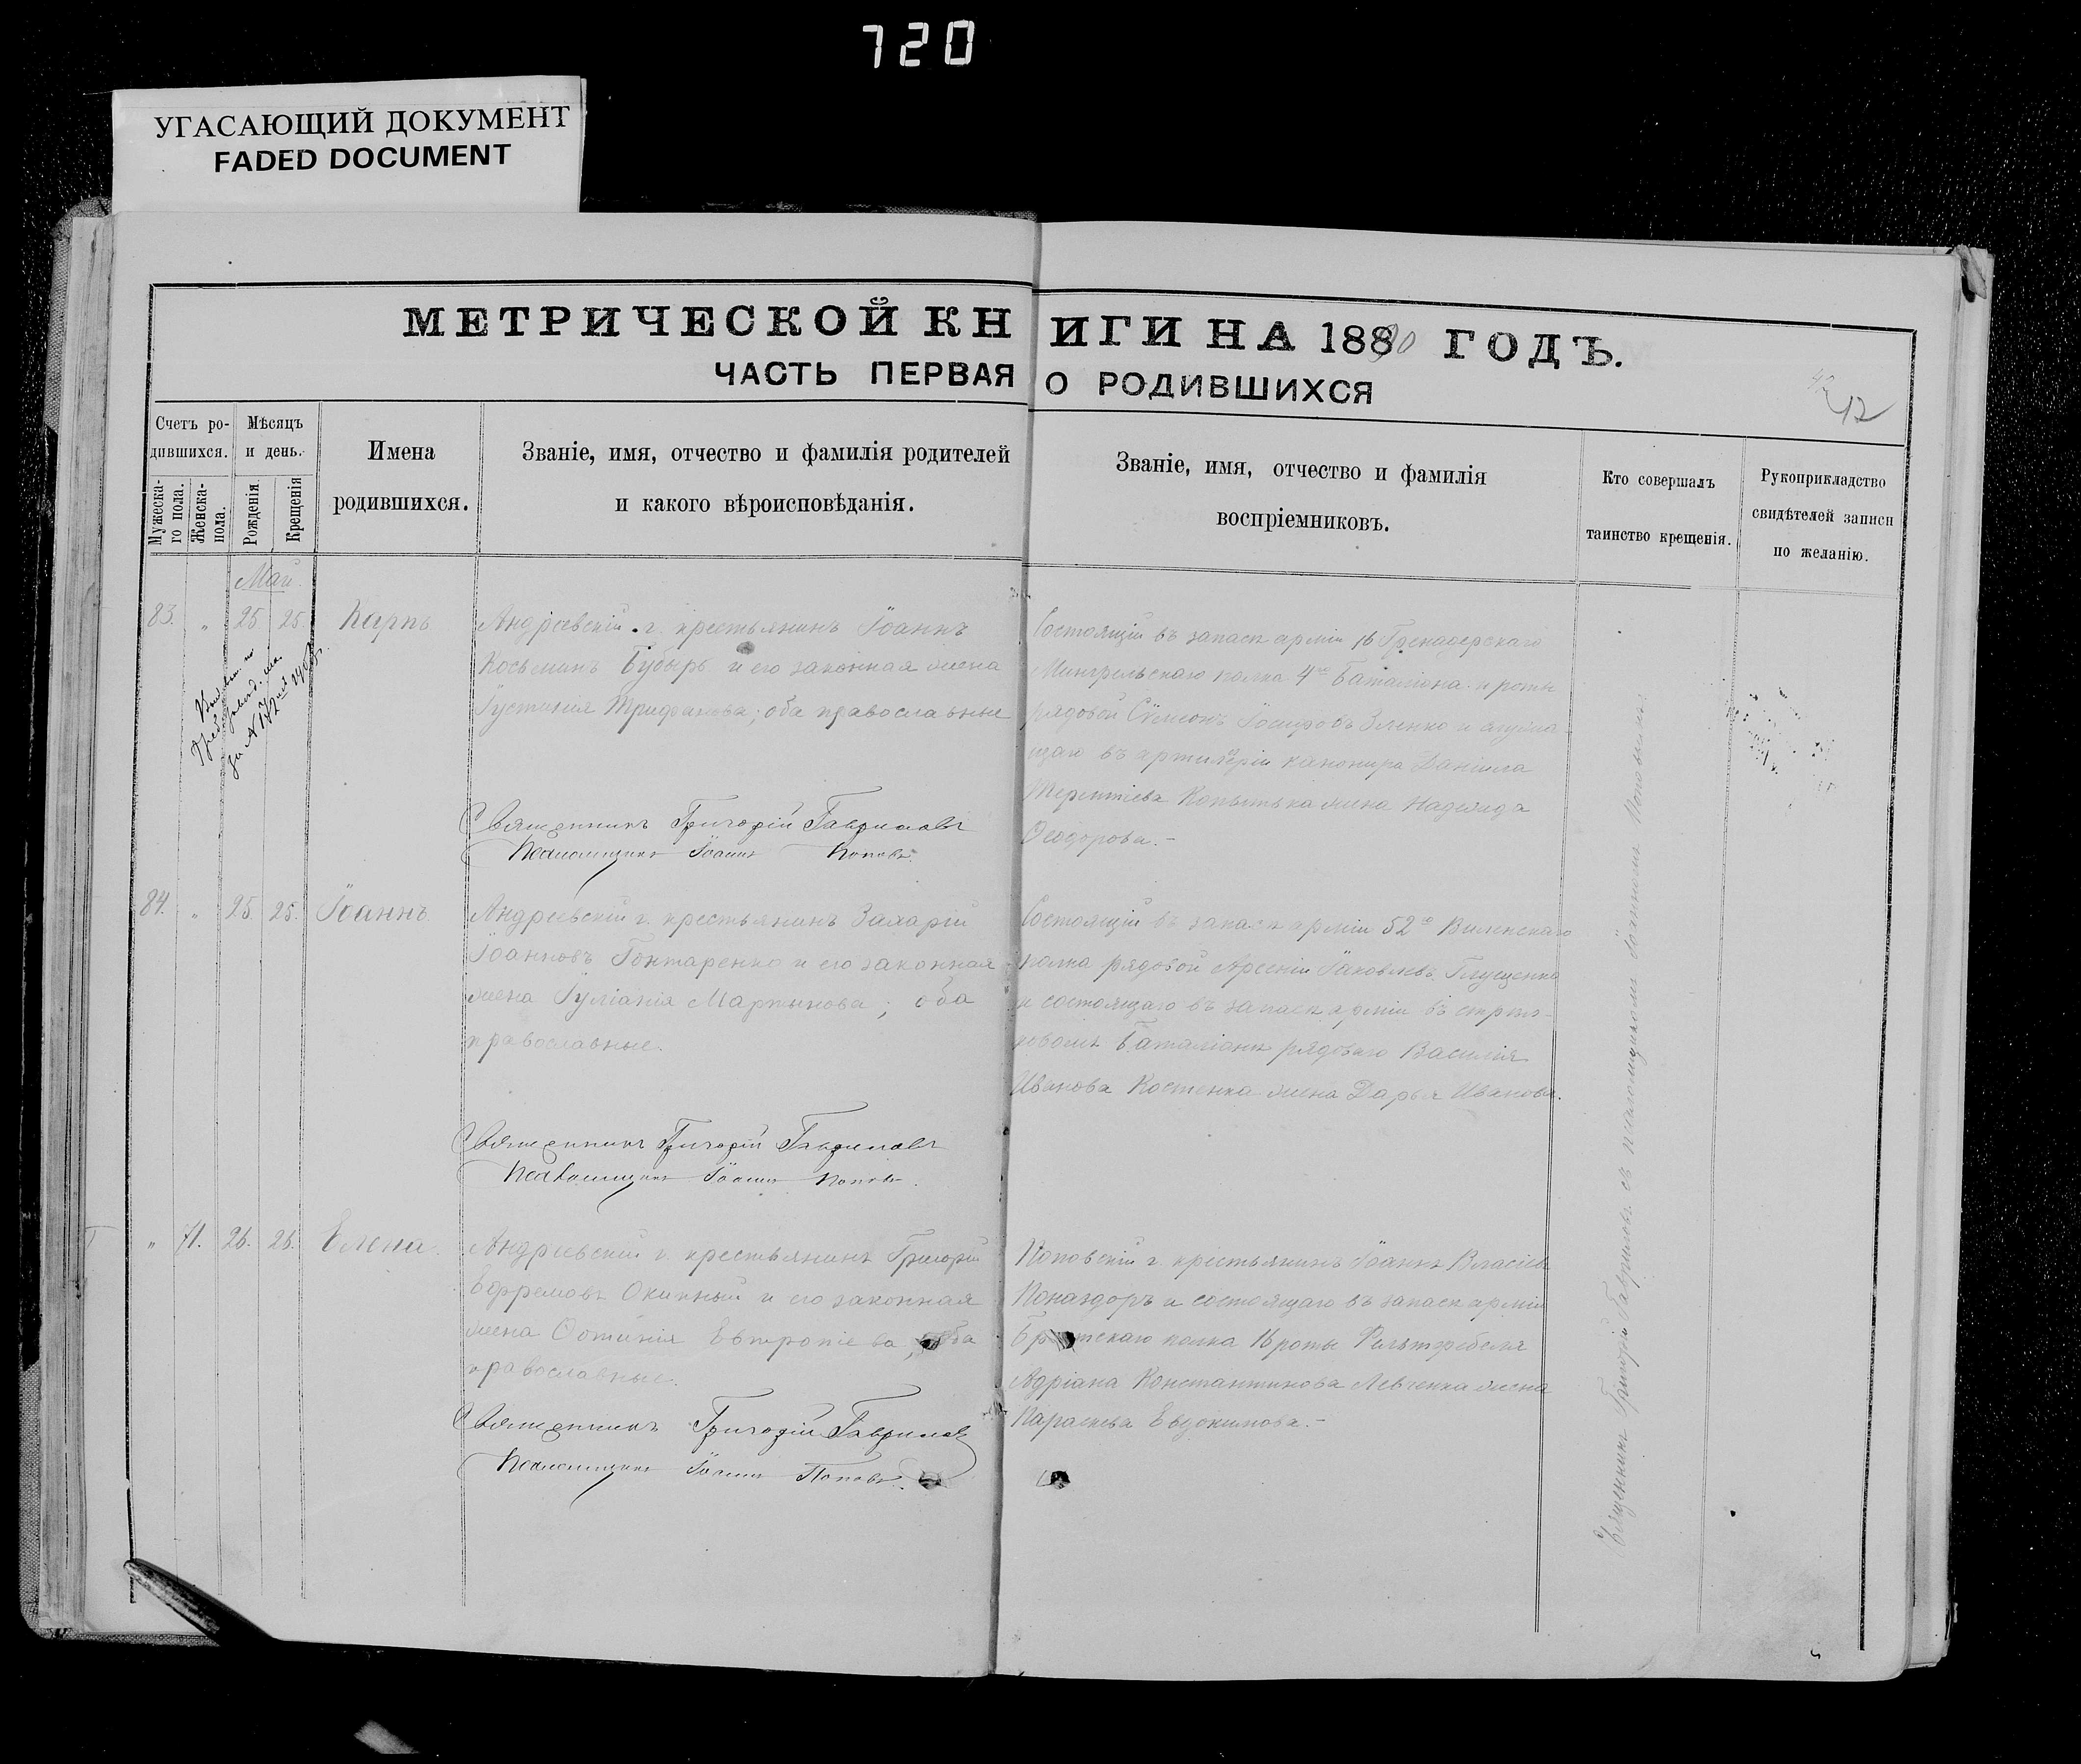 720
УГАСАЮЩИЙ ДОКУМЕНТ
FADED DOCUMENT
МЕТРИЧЕСКОЙ КНИГИ НА 18890 ГОДЪ.
ЧАСТЬ ПЕРВАЯ О РОДИВШИХСЯ
42
12
Счетъ ро-
дившихся.
Мужеска-
го пола.
Женска-
пола.
Мѣсяцъ
и день.
Рожденія
Крещенія
Имена
родившихся.
Званіе, имя, отчество и фамилія родителей
и какого вѣроисповѣданія.
Званіе, имя, отчество и фамилія
воспріемниковъ.
Кто совершалъ
таинство крещенія.
Рукоприкладство
свидѣтелей записи
по желанію.
Май.
83. " 25 25. Карпъ
Андреевскій г. крестьянинъ Іоаннъ
Косьминъ Бубырь и его законная жена
Іустинія Трифонова; оба православные
Состоящій въ запасѣ арміи 16 Гренадерскаго
Мингрельскаго полка 4го Баталіона роты
рядовой Сѷмеонъ Іосифовъ Зленко и
въ артилеріи канонира Даніила
Терентіева Копытька жена Надежда
Ѳеодорова.-
Священникъ Григорій Гавриловъ
Псаломщикъ Іоаннъ Поповъ.
84. " 25. 25. Іоаннъ
Андреевскій г. крестьянинъ Захарій
Іоанновъ Гонтаренко и его законная
жена Іуліанія Мартынова; оба
православные.
Состоящій въ запасѣ арміи 52го Виленскаго
полка рядовой Арсеній Іаковлевъ Глущенко
и состоящаго въ запасѣ арміи въ стрѣл-
ковомъ Баталіонѣ рядоваго Василія
Иванова Костенка жена Дарья Иванова.
Священникъ Григорій Гавриловъ
Псаломщикъ Іоаннъ Поповъ.
" 71. 26. 26. Елена.
Андреевскій г. крестьянинъ Григорій
Ефремовъ Окипный и его законная
жена Евтропіева, оба
православные.
Поповскій г. крестьянинъ Іоаннъ Власіевъ
Поназдоръ и состоящаго въ запасѣ арміи
полка 16 роты Фельтфебеля
Адріана Константинова Левченка жена
Параскева Евдокимова.-
Священникъ Григорій Гавриловъ
Псаломщикъ Іоаннъ Поповъ.
Священникъ Григорій Гавриловъ съ псаломщикомъ Іоанномъ Поповымъ.